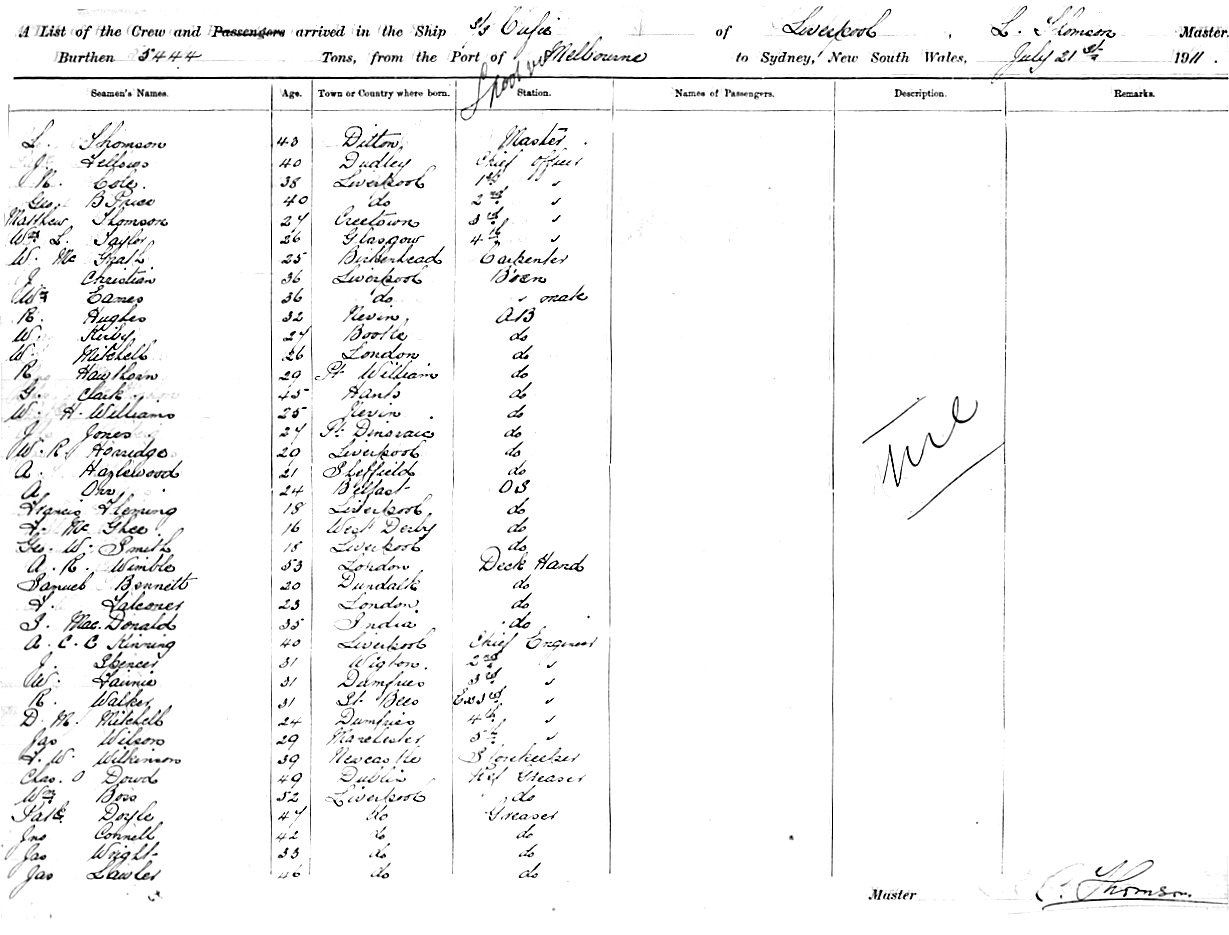 A List of the Crew and Passengers arrived in the Ship s/s Cufic of Liverpool, L. Thomson Master.
Burthen 5444 Tons, from the Port of Melbourne to Sydney, New South Wales, July 21st 1911.
Seamen's Names. Age. Town or Country where born. Station. Names of Passengers. Description. Remarks.
L. Thomson 43 Ditton Master.
J. Fellows 40 Dudley Chief Officer
R. Cole. 38 Liverpool 1st "
Geo. B Price 40 do 2nd "
Matthew Thomson 27 Creetown 3rd "
Wm L. Taylor 26 Glasgow 4th "
W. Mc Grath 25 Birkenhead Carpenter
J Christian 36 Liverpool Bosn
Wm Eames 36 do " mate
R. Hughes 32 Nevin AB
W. Kirby 27 Bootle do
W. Mitchell 26 London do
R Hawthorn 29 Pt. William do
G. Clark 45 Hants do
W. H. Williams 25 Nevin do
J Jones 27 Pt. Dinorwic do
W. R. Horridge 20 Liverpool do
A. Hazlewood 21 Sheffield do
A Orr 24 Belfast OS
Francis Fleming 18 Liverpool do
F. Mc Ghee 16 West Derby do
Geo. W. Smith 18 Liverpool do
A. R. Wimble 53 London Deck Hand
Samuel Bennett 20 Dundalk do
F. Falconer 23 London do
I. Mac. Donald 35 India do
A. C. C Kinning 40 Liverpool Chief Engineer
J. Spencer 31 Wigton. 2nd "
W. 31 Dumfries 3rd "
R. Walker 31 St. Bees Ex 3rd "
D. M. Mitchell 24 Dumfries 4th "
Jas Wilson 29 Manchester 5th "
F. W. Wilkinson 39 Newcastle Storekeeper
Chas. O Dowd 49 Dublin Ref Greaser
Wm Boss 52 Liverpool do
Patk. Doyle 47 do Greaser
Jno Connell 42 do do
Jas Wright 33 do do
Jas Lawler 46 do do
Master L. Thomson.